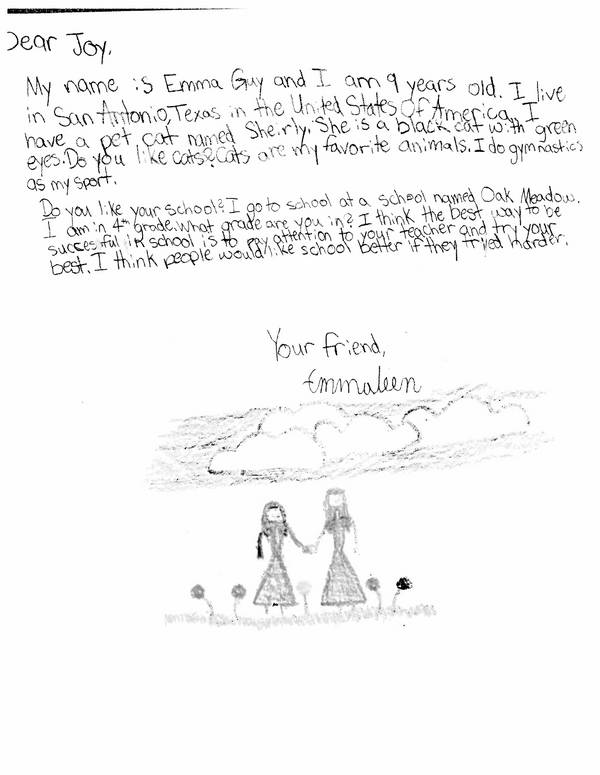 Dear Joy,
My name is Emma Guy and I am 9 years old. I live
in San Antonio, Texas in the United States Of America. I
have a pet cat named Sheirly. She is a black cat with green
eyes. Do you like cats? Cats are my favorite animals. I do gymnastics
as my sport.
Do you like your school? I go to school at a school named Oak Meadow.
I am in 4th grade. what grade are you in? I think the best way to be
succesful in school is to pay attention to your teacher and try your
best. I think people would like school better if they tryed harder.
Your friend,
Emmaleen